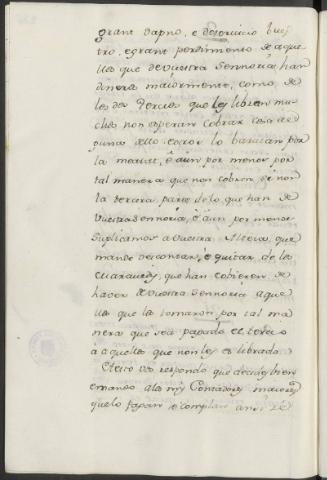 grant dapno, e deservicio vues
tro, e grant perdimento de aque
llos que de vuestra sennoria han
dineros maiormente, como de
les dos Tercios que les libran mu
chos non esperan cobrar cosa al
gunas dello lo baratan por
la meatat, e aun por menor por
tal manera que non cobran si non
la tercera parte de lo que han de
vuestra sennoria, e aun por menos
suplicamos a vuestra Alteza que
mande descontar, e quitar de los
maravedis, que han e ovieren de
haver de vuestra sennoria aque
llos que lo tomaron por tal ma
nera que sea pagado el tercio
a aquellos que non les es librado.
A esto vos respondo que decides bien
e mando a los mis Contadores maiores
que lo fagan e complan ansi de